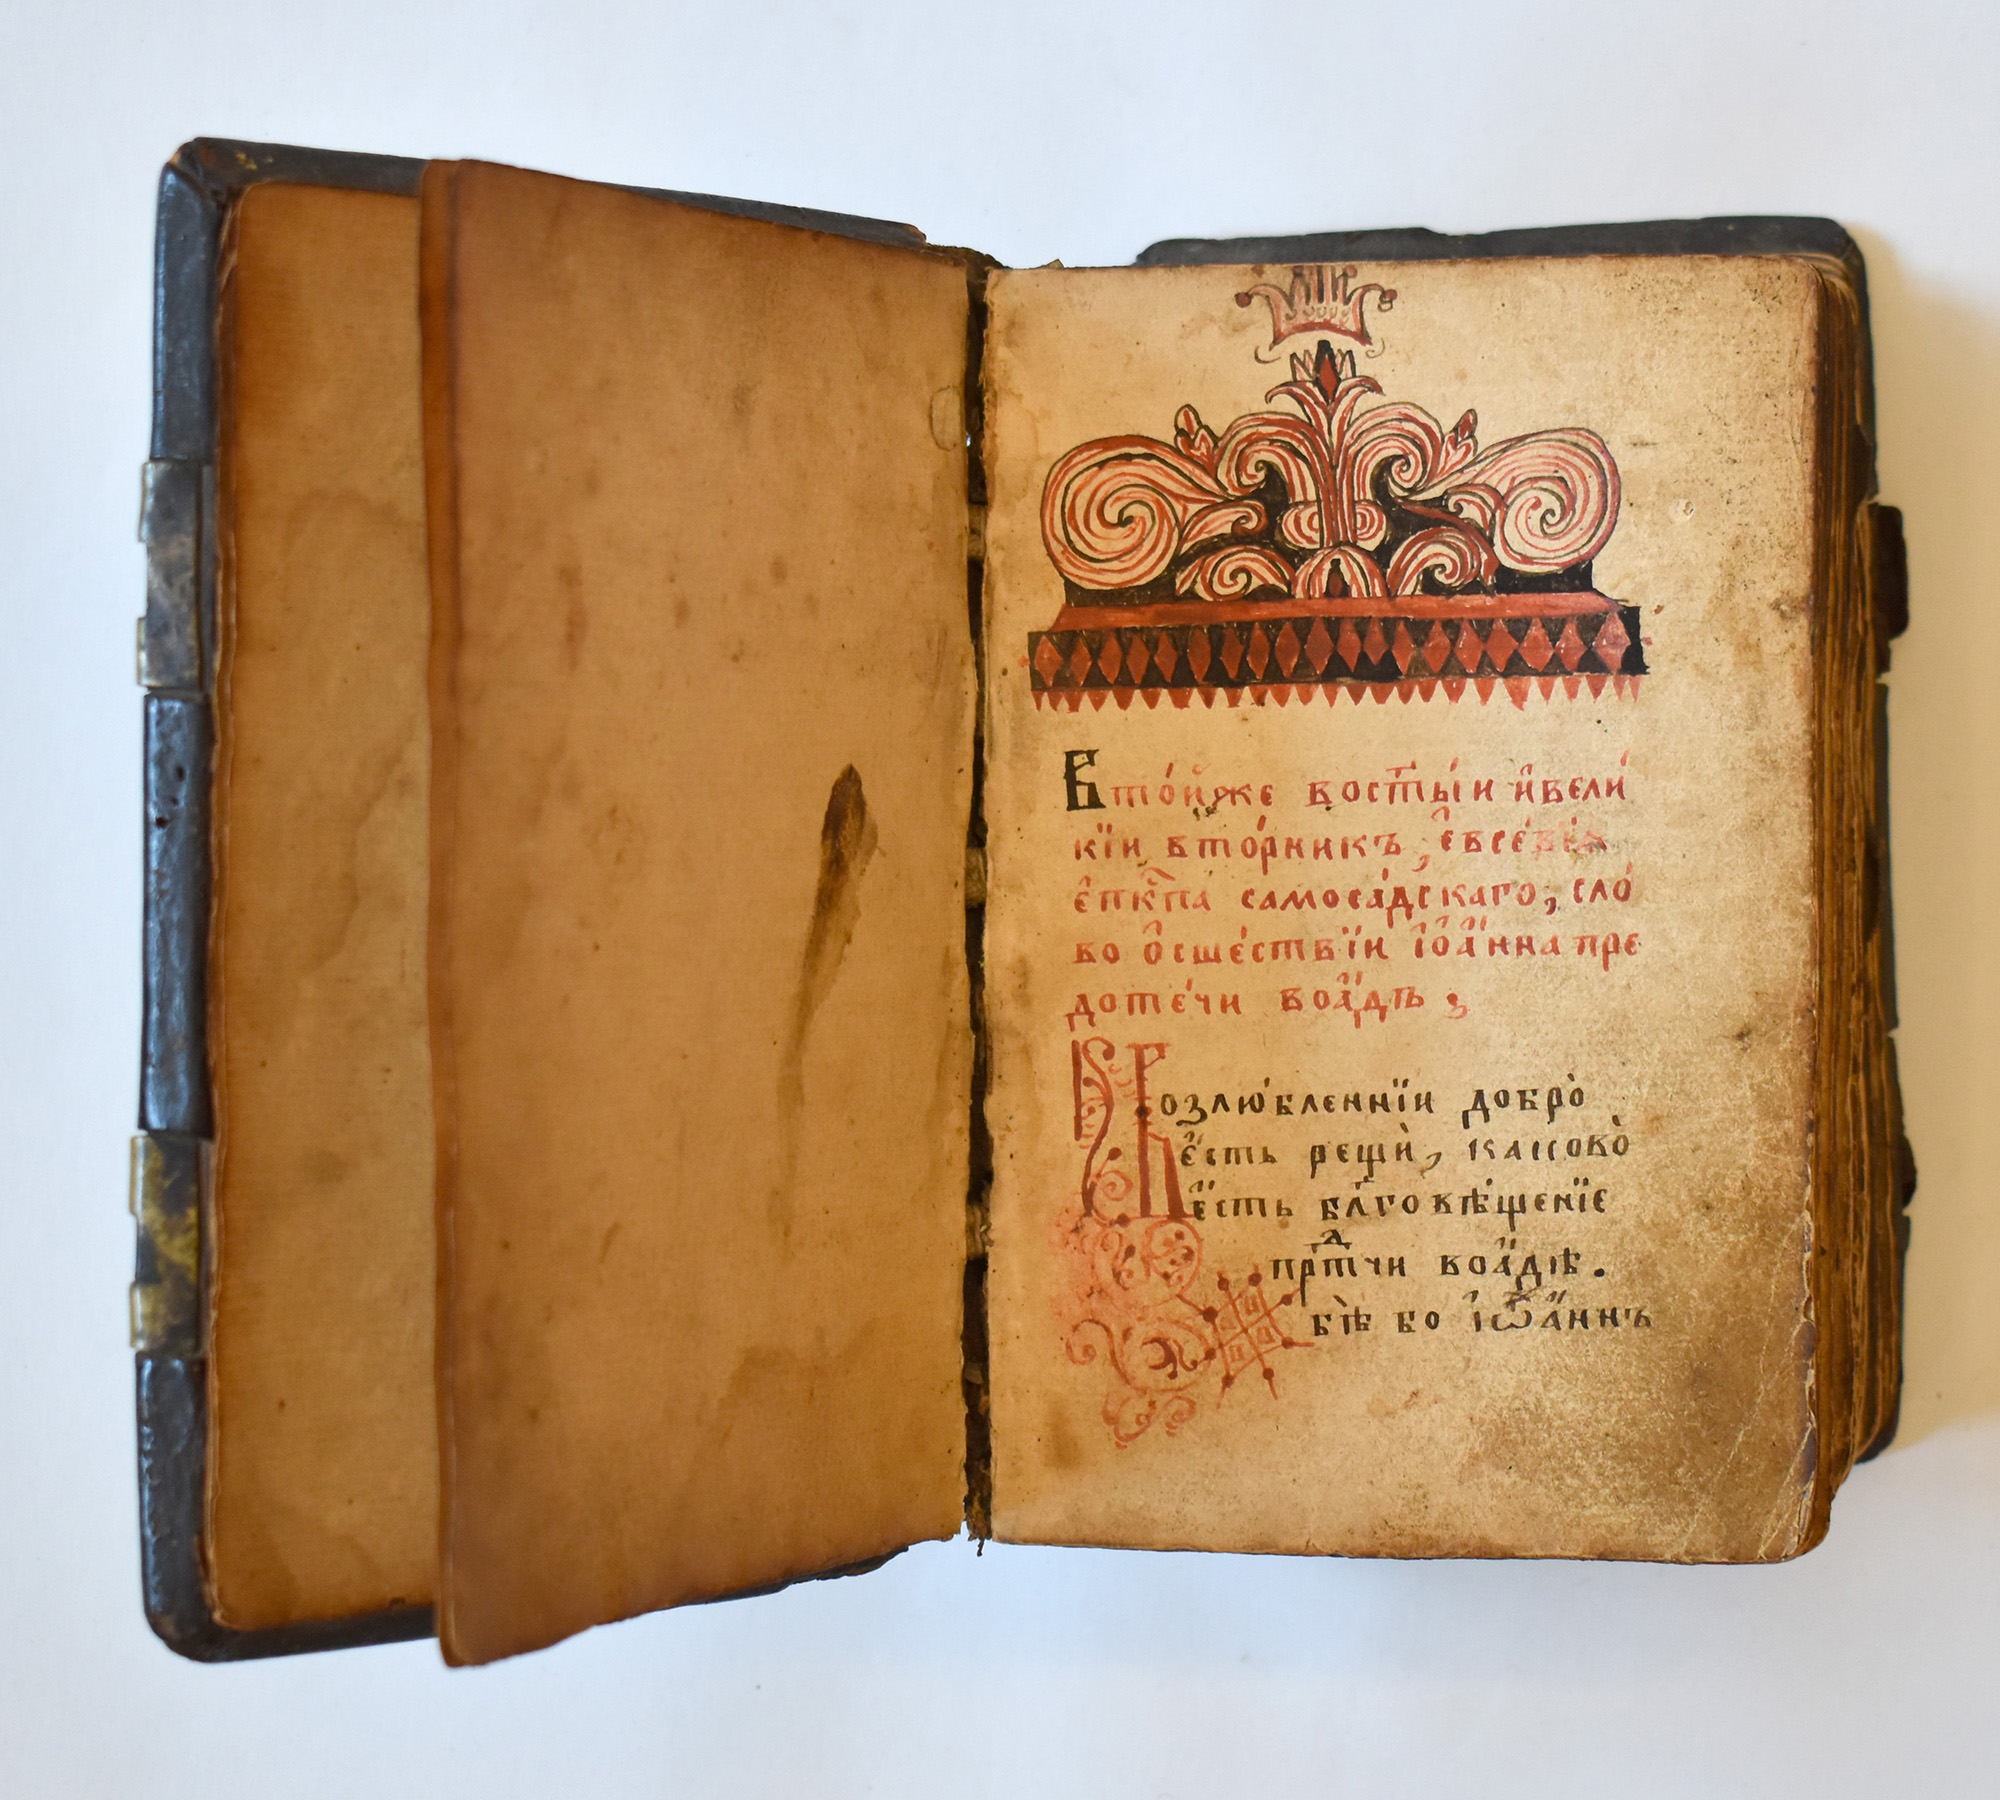 Втѡ́йже восты́и и҆вели
кїи вто́рникъ, є҆все́вїѧ
є҆пкⷭ҇па самоса́дскаго, сло́
во ѻ҆сше́ствїи і҆ѻа́нна пре
доте́чи воа҆́дъ ;
Возлю́бленнїи добро̀
є҆́сть рещѝ, каково̀
є҆́сть бл҃говѣ́щенїе
прⷣтчи воа҆́дѣ.
бѣ̀ бо і҆ѡа́ннъ